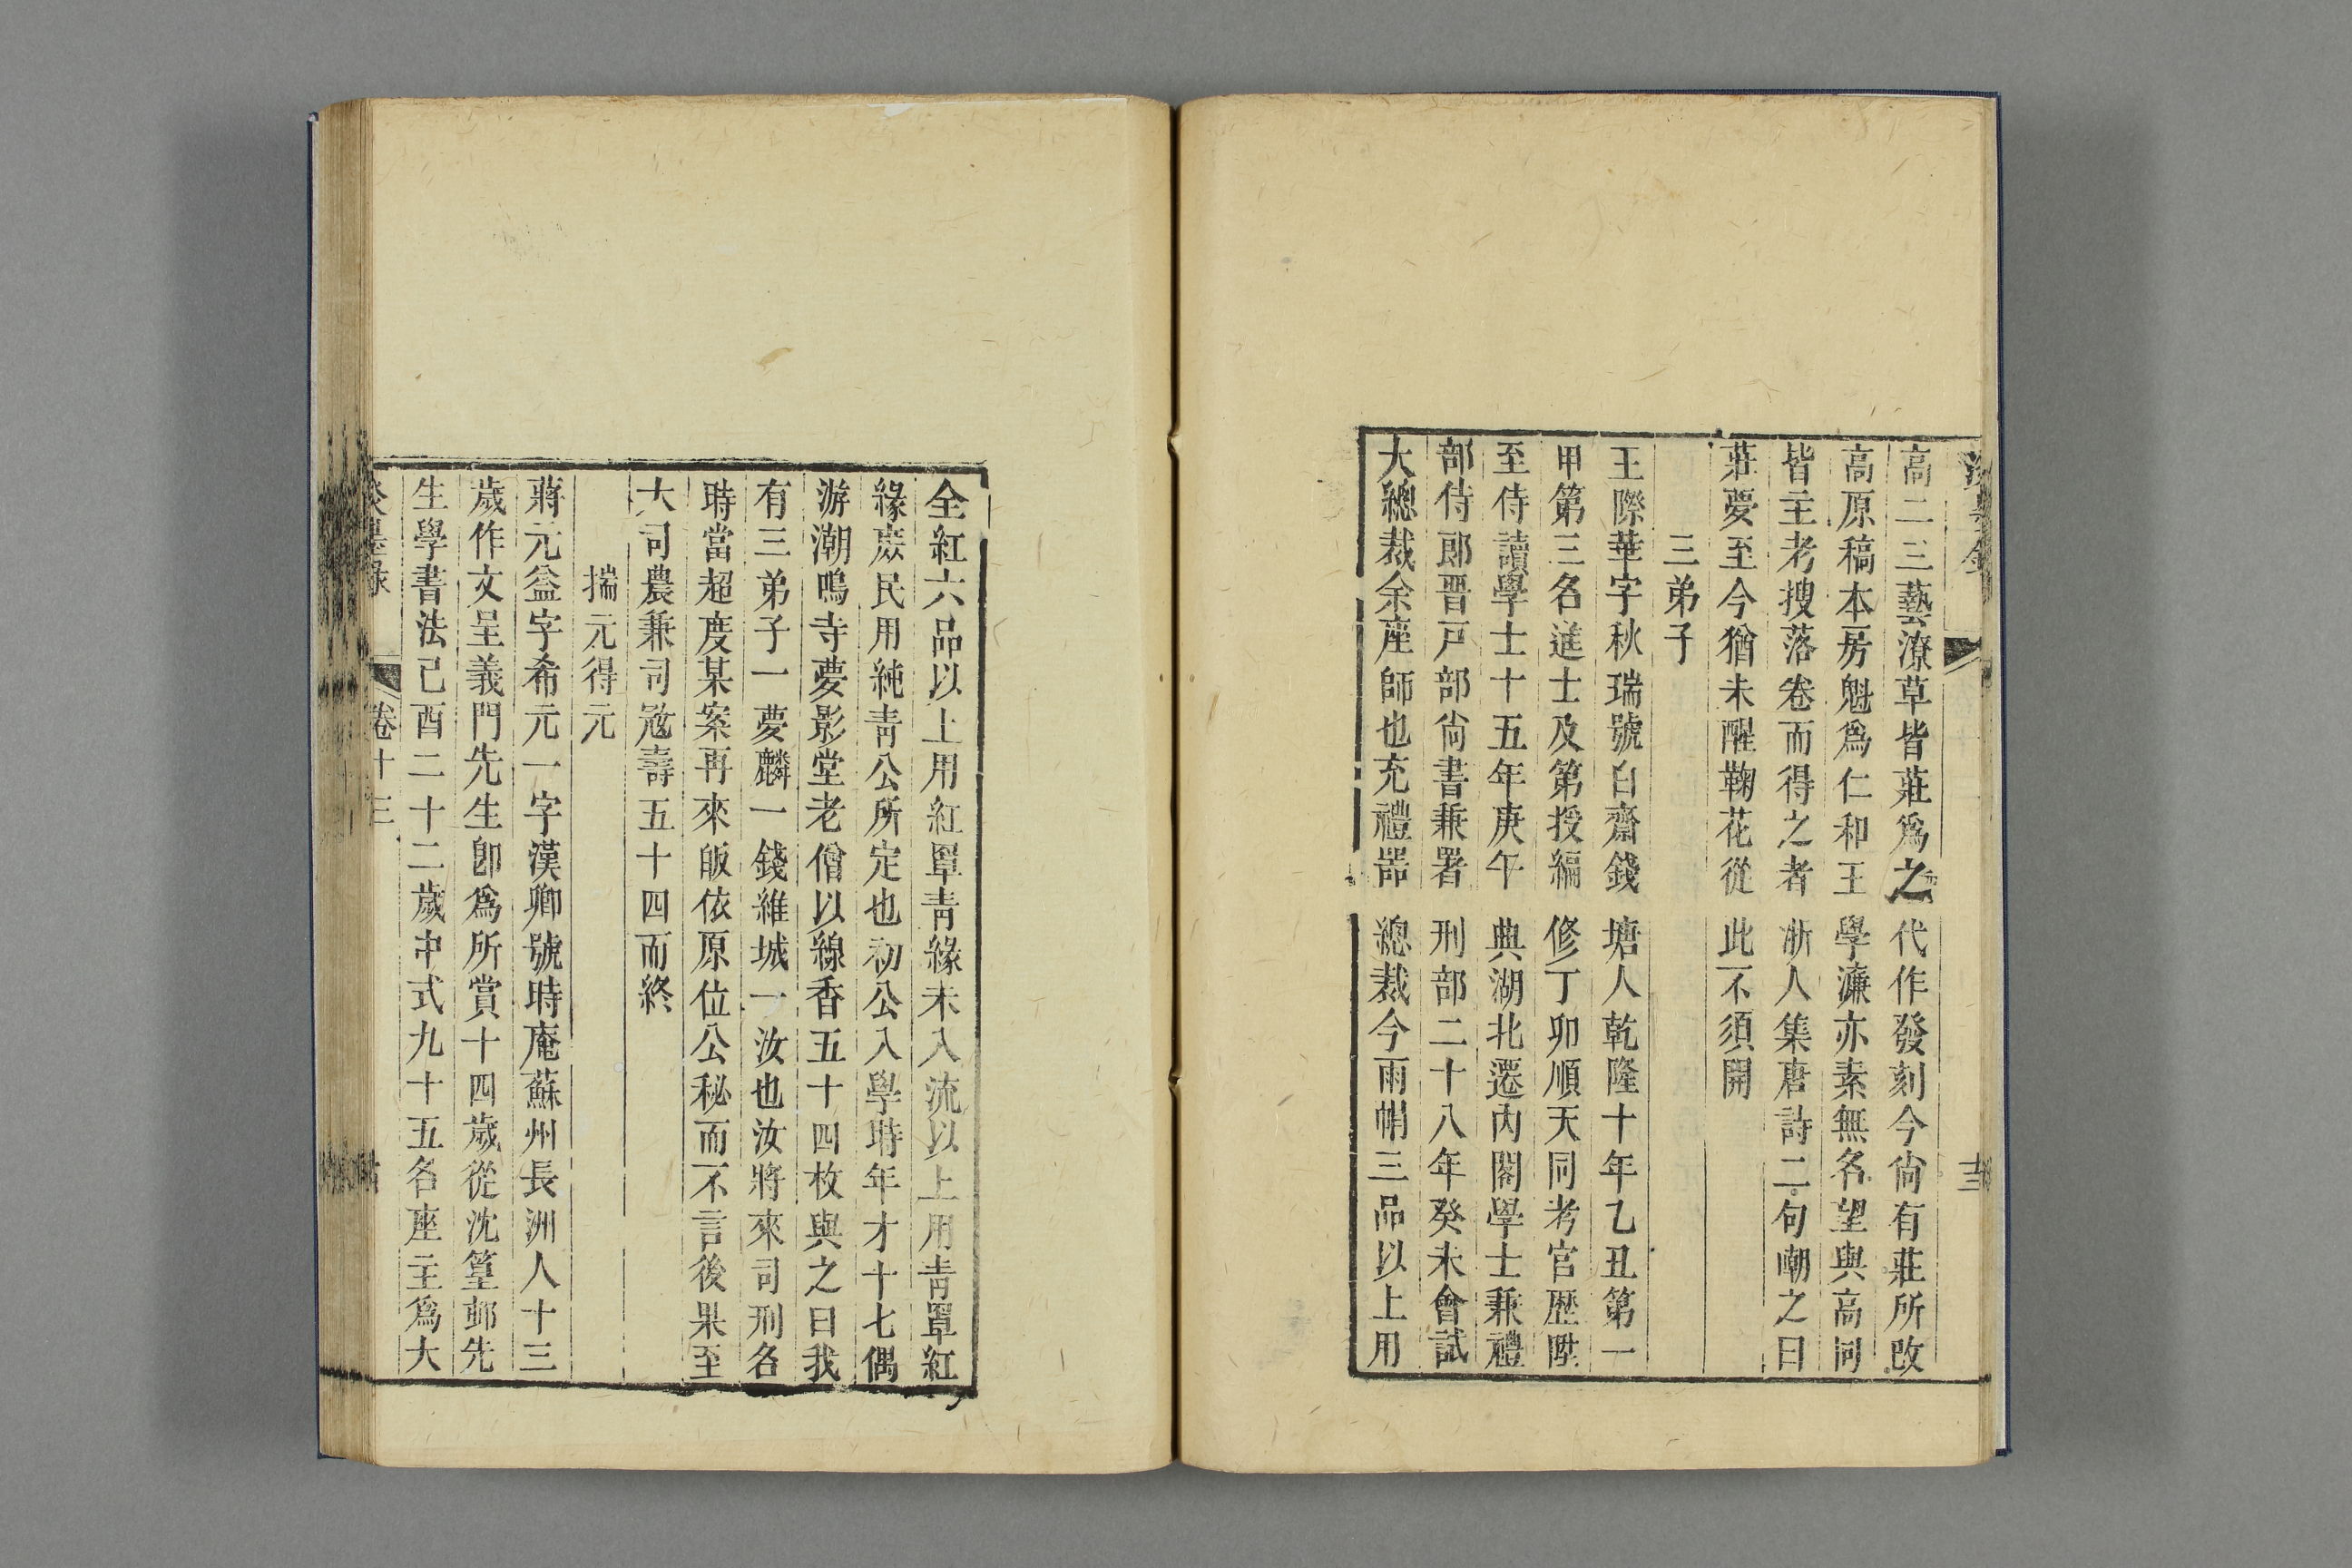 高二三藝潦草皆莊爲之代作發刻今尙有莊所改
高原稿本房魁爲仁和王學濂亦素無名望與高同
皆主考搜落卷而得之者浙人集唐詩二句嘲之曰
莊夢至今猶未醒鞠花從此不須開
三弟子
王際華字秋瑞號白齋錢塘人乾隆十年乙丑第一
甲第三名進士及第授編修丁卯順天同考官歴陞
至侍讀學士十五年庚午典湖北遷內閣學士兼禮
部侍郎晋戸部尙書兼署刑部二十八年癸未會試
大總裁余座師也充禮部總裁今雨帽三品以上用
全紅六品以上用紅罩青緣未入流以上用青罩紅
緣庶民用純青公所定也初公入學時年才十七偶
游潮鳴寺夢影堂老僧以線香五十四枚與之曰我
有三弟子一夢麟一錢維城一汝也汝將來司刑名
時當超度某案再來皈依原位公秘而不言後果至
大司農兼司寇壽五十四而終
揣元得元
蔣元益字希元一字漢卿號時庵蘇州長洲人十三
歲作文呈義門先生卽爲所賞十四歲從沈篁邨先
生學書法己酉二十二歲中式九十五名座主爲大
卷十三